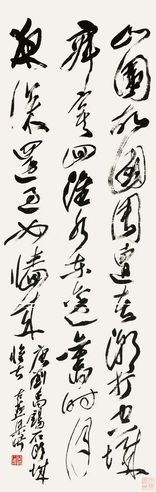 山围故国周遭在潮打空城
寂寞回淮水东边旧时月
夜深还过女墙来
唐刘禹锡石头城